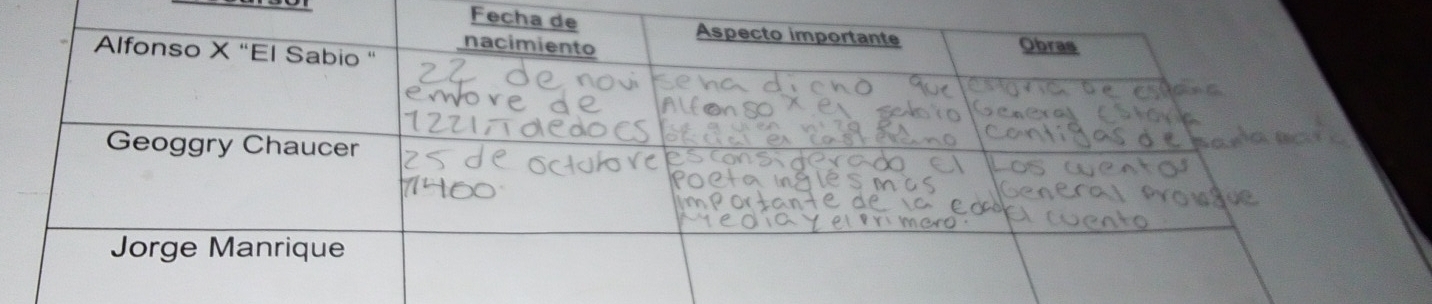 Fecha de
nacimiento
Aspecto importante
Obras
Alfonso X "El Sabio "
22 de novi
embre de
1221, Toledo ES
Se ha dicho que
Alfonso X el sabio
oficial el castellano
Estoria de españa
General Estoria
cantigas de santa maria
Geoggry Chaucer
25 de octubre
1400.
es considerado el
Poeta inglés mas
importante de la edad
Media y el primero.
Los cuentos
General prologue
cuento
Jorge Manrique